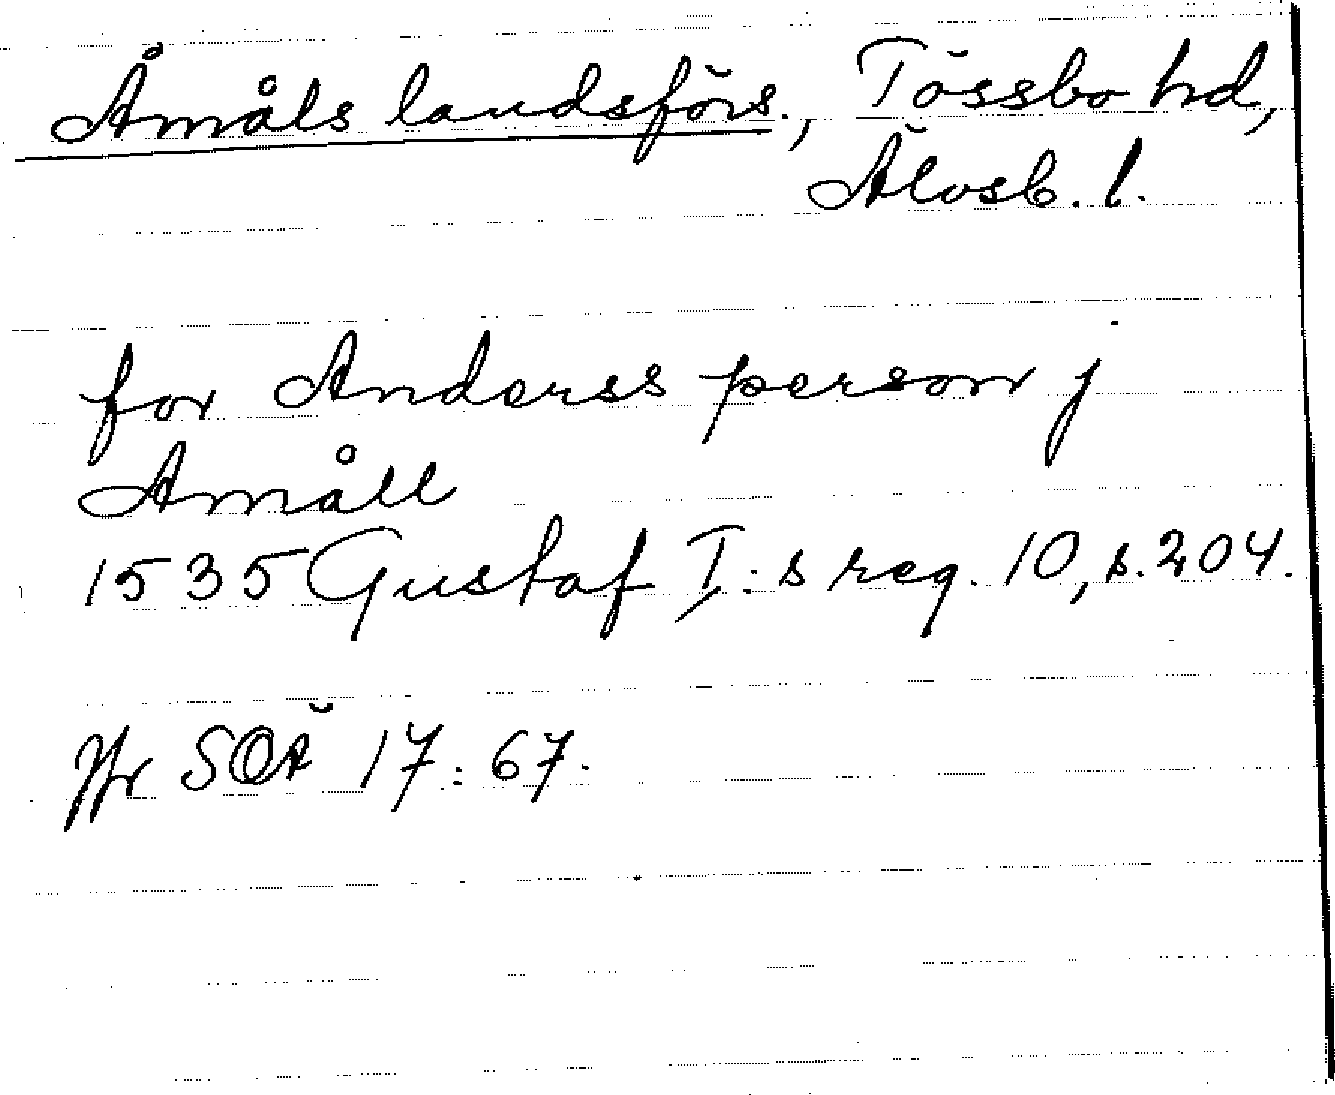 Åmåls landsförs., Tössbo hd,
Älvsb. l.
for Anderss person j
Amåll
1535 Gustaf I:s reg. 10, s. 204.
Jfr SOÄ 17:67.